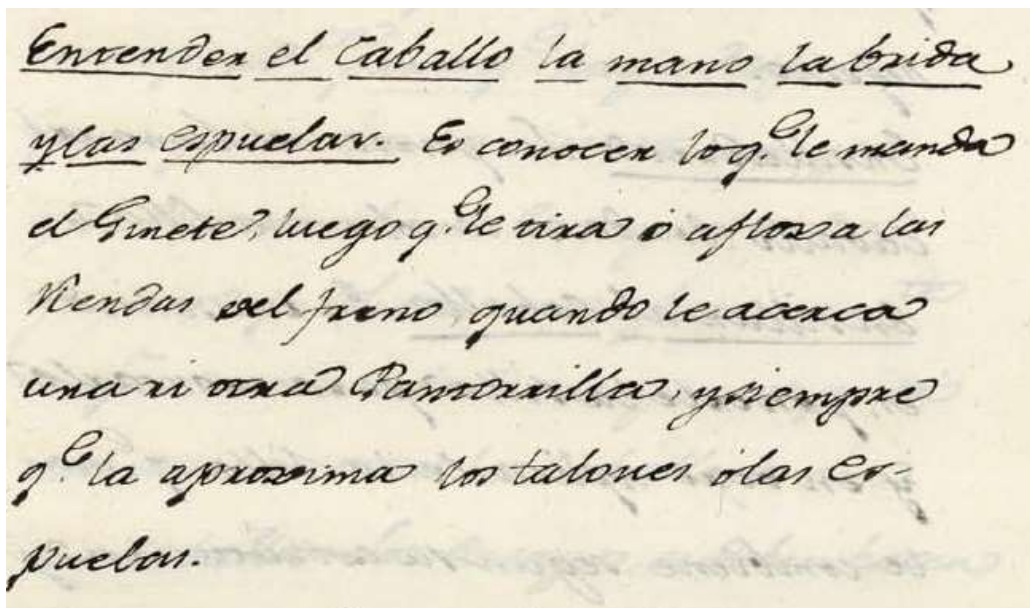 Entender el Caballo la mano la brida
y las espuelas. Es conocer lo q.e le manda
el Ginete, luego q.e le tira ó afloxa las
Riendas del freno, quando le acerca
una ú otra Pantorrilla, y siempre
q.e la aproxima los talones ó las es-
puelas.